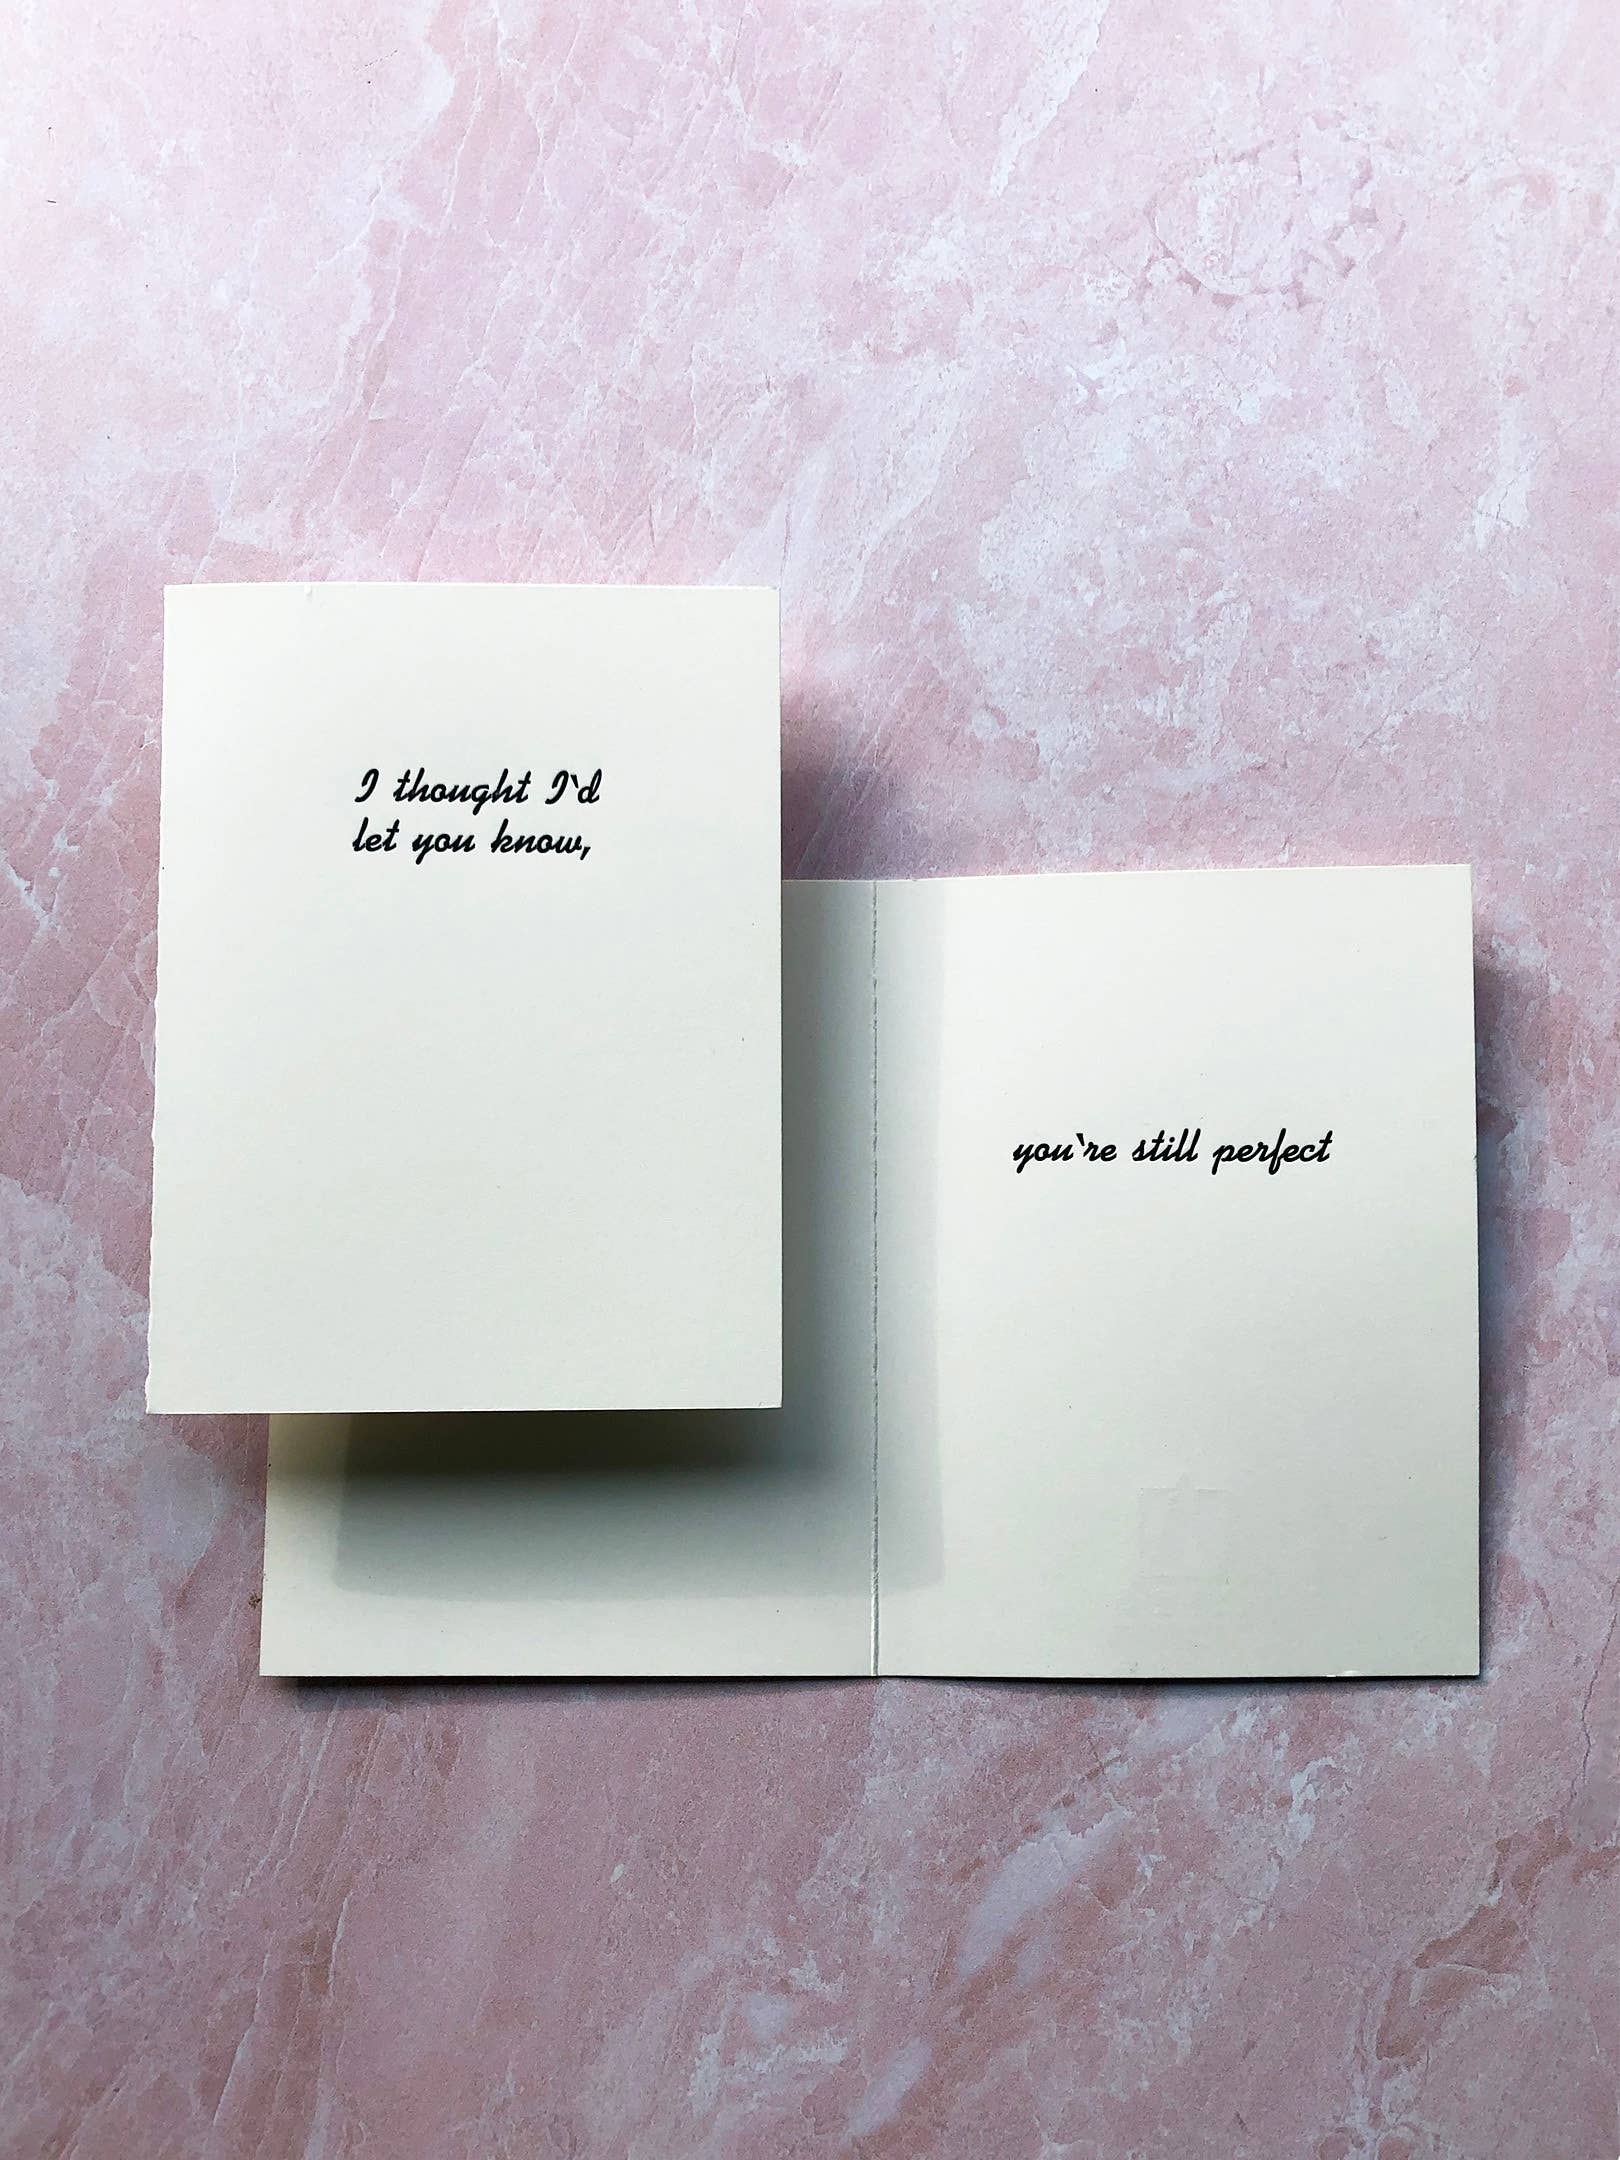 I thought I`d
let you know,
you`re still perfect